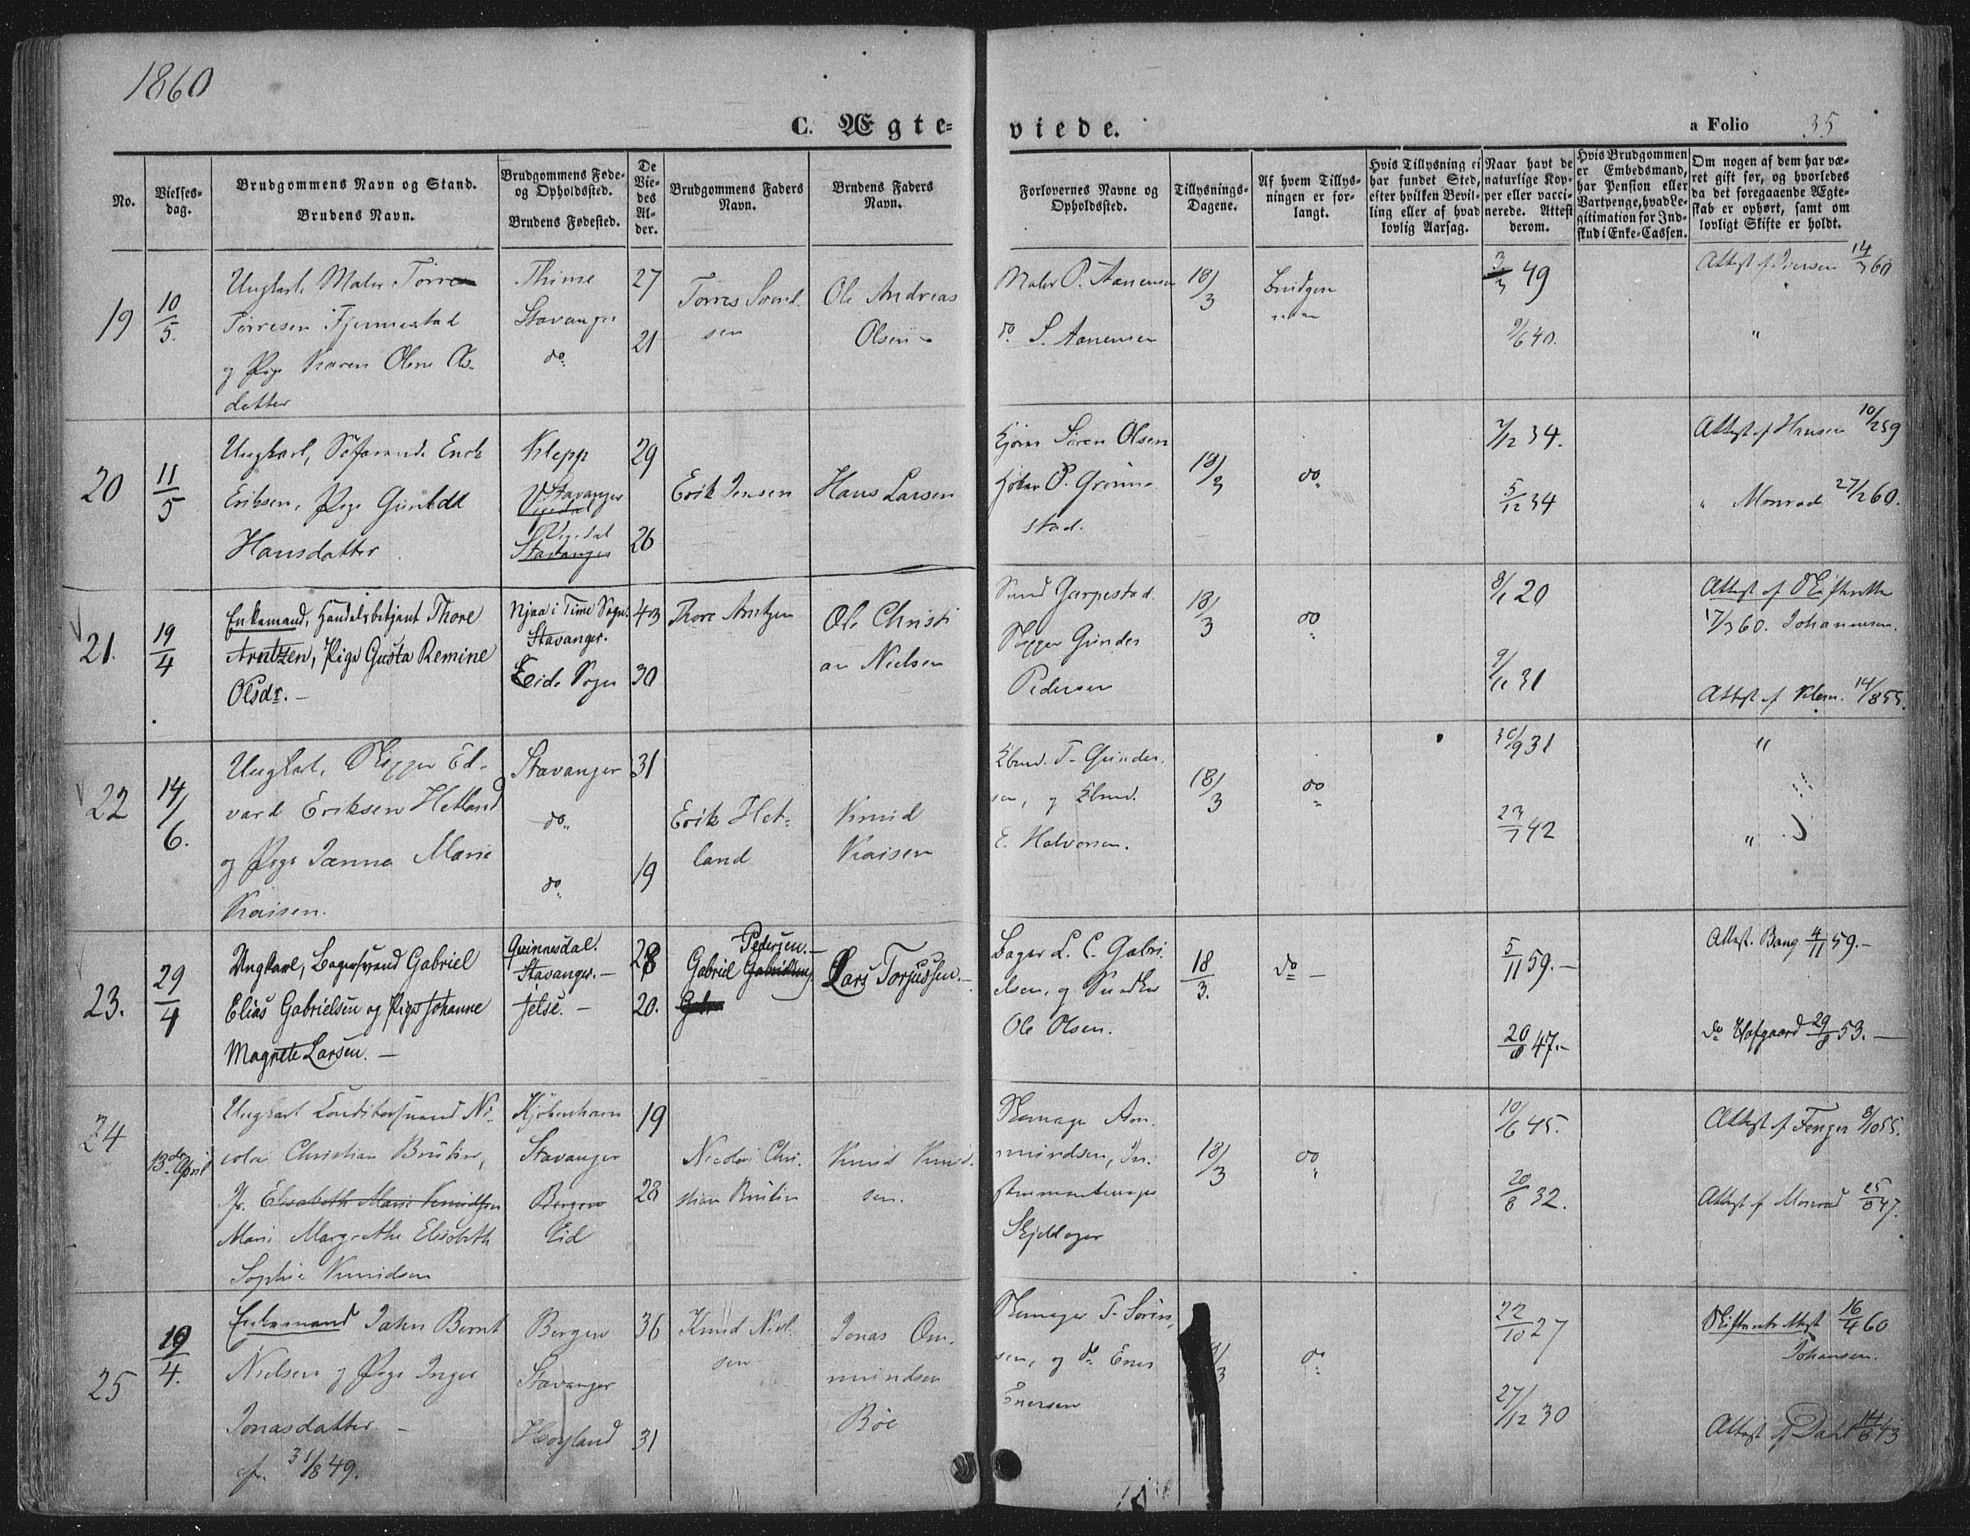 1860
C. Ægte-
viede.
a Folio 35
No.
Vielses-
dag.
Brudgommens Navn og Stand.
Brudens Navn.
Brudgommens Føde-
og Opholdssted.
Brudens Fødested.
De
Vie-
des
Al-
der.
Brudgommens Faders
Navn.
Brudens Faders
Navn.
Forlovernes Navne og
Opholdssted.
Tillysnings-
Dagene.
Af hvem Tillys-
ningen er for-
langt.
Hvis Tillysning ei
har fundet Sted,
efter hvilken Bevil-
ling eller af hvad
lovlig Aarsag.
Naar havt de
naturlige Kop-
per eller vacci-
nerede. Attest
derom.
Hvis Brudgommen
er Embedsmand,
har Pension eller
Vartpenge, hvad Le-
gitimation for Ind-
skud i Enke-Cassen.
Om nogen af dem har væ-
ret gift før, og hvorledes
da det foregaaende Ægte-
skab er ophørt, samt om
lovligt Skifte er holdt.
19
10/5.
Ungkarl, Maler Torres
Torresen Fjermestad
og Pige Karen Oline Ols-
datter
Thime
Stavanger
do.
27
21
Torres Svend-
sen
Ole Andreas
Olsen
Maler O. Aanensen
do S. Aanensen
18/3
Brudgom-
men
3/3 49
9/6 40.
Attest af Iversen 14/3 60
"
20
11/5
Ungkarl, Søfarende Erik
Eriksen, Pige Gunild
Hansdatter
Klepp
Stavanger
Vigedal
Vigedal
Stavanger
29
26
Erik Jensen
Hans Larsen
Søren Olsen
P. Grønne-
stad.
18/3
do
7/12 34.
5/12 34
Attest af Hansen 10/12 59
" Monrad 27/2 60.
21.
19/4
Enkemand, Handelsbetjent Thore
Arntzen, Pige Gusta Remine
Olsdr. -
Njaa i Time Sogn.
Stavanger.
Eide Sogn
43
30
Thore Arntzen
Ole Christi
an Nielsen
Svend Garpestad.
Skipper Gunder
Pedersen
18/3
do
8/1 20
9/11 31
Attest af Skifteretten
17/3 60. Johannesen.
Attest af 14/8 55.
22
14/6.
Ungkarl, Skipper Ed-
vard Eriksen Hetland
og Pige Janna Marie
Knudsen.
Stavanger
do.
do.
31
19
Erik Het-
land
Knud
Knudsen
T. Gunder-
sen, og
E. Halvorsen.
18/3
do
30/9 31
23/7 42
"
"
23.
29/4
Ungkarl, Bagersvend Gabriel
Elias Gabrielsen og Pige Johanne
Magrete Larsen. -
Qvinnesdal.
Stavanger. -
Jelse. -
28
20.
Pedersen. -
Gabriel Gabrielsen
Gabr
Lars Torjussen. -
Bager L. C. Gabri-
elsen, og
Ole Olsen.
18/3.
do -
5/11 59. -
20/8 47. -
Attest. Bang 4/11 59. -
do Hofgaard 29/8 53. -
24
13de April
Ungkarl Conditorsvend Ni-
colai Christian Bruun,
Jfr. Elisabeth Marie Knudsen
Marie Margrethe Elisabeth
Sophie Knudsen
Kjøbenhavn
Stavanger
Bergen
Eid
19
28
Nicolai Chri-
stian Bruun
Knud Knud-
sen.
Skomager Am-
mundsen, In-
strumentmager
Skjeldager
18/3
do
10/6 45.
20/8 32.
Attest af Fenger 8/10 55.
Attest af Monrad 25/8 47.
25
19/4.
Enkemand John Bernt
Nielsen og Pige Inger
Jonasdatter -
cfr. 31/8 49.
Bergen
Stavanger
Høyland
36
31
Knud Niel-
sen
Jonas Om-
mundsen
Bøe
Skomager T. Søren-
sen, og do Ener
Enersen
/3
do
22/10 27
27/12 30
Skifterets Attest 16/4 60
Johansen.
Attest af Dahl 14/6 43